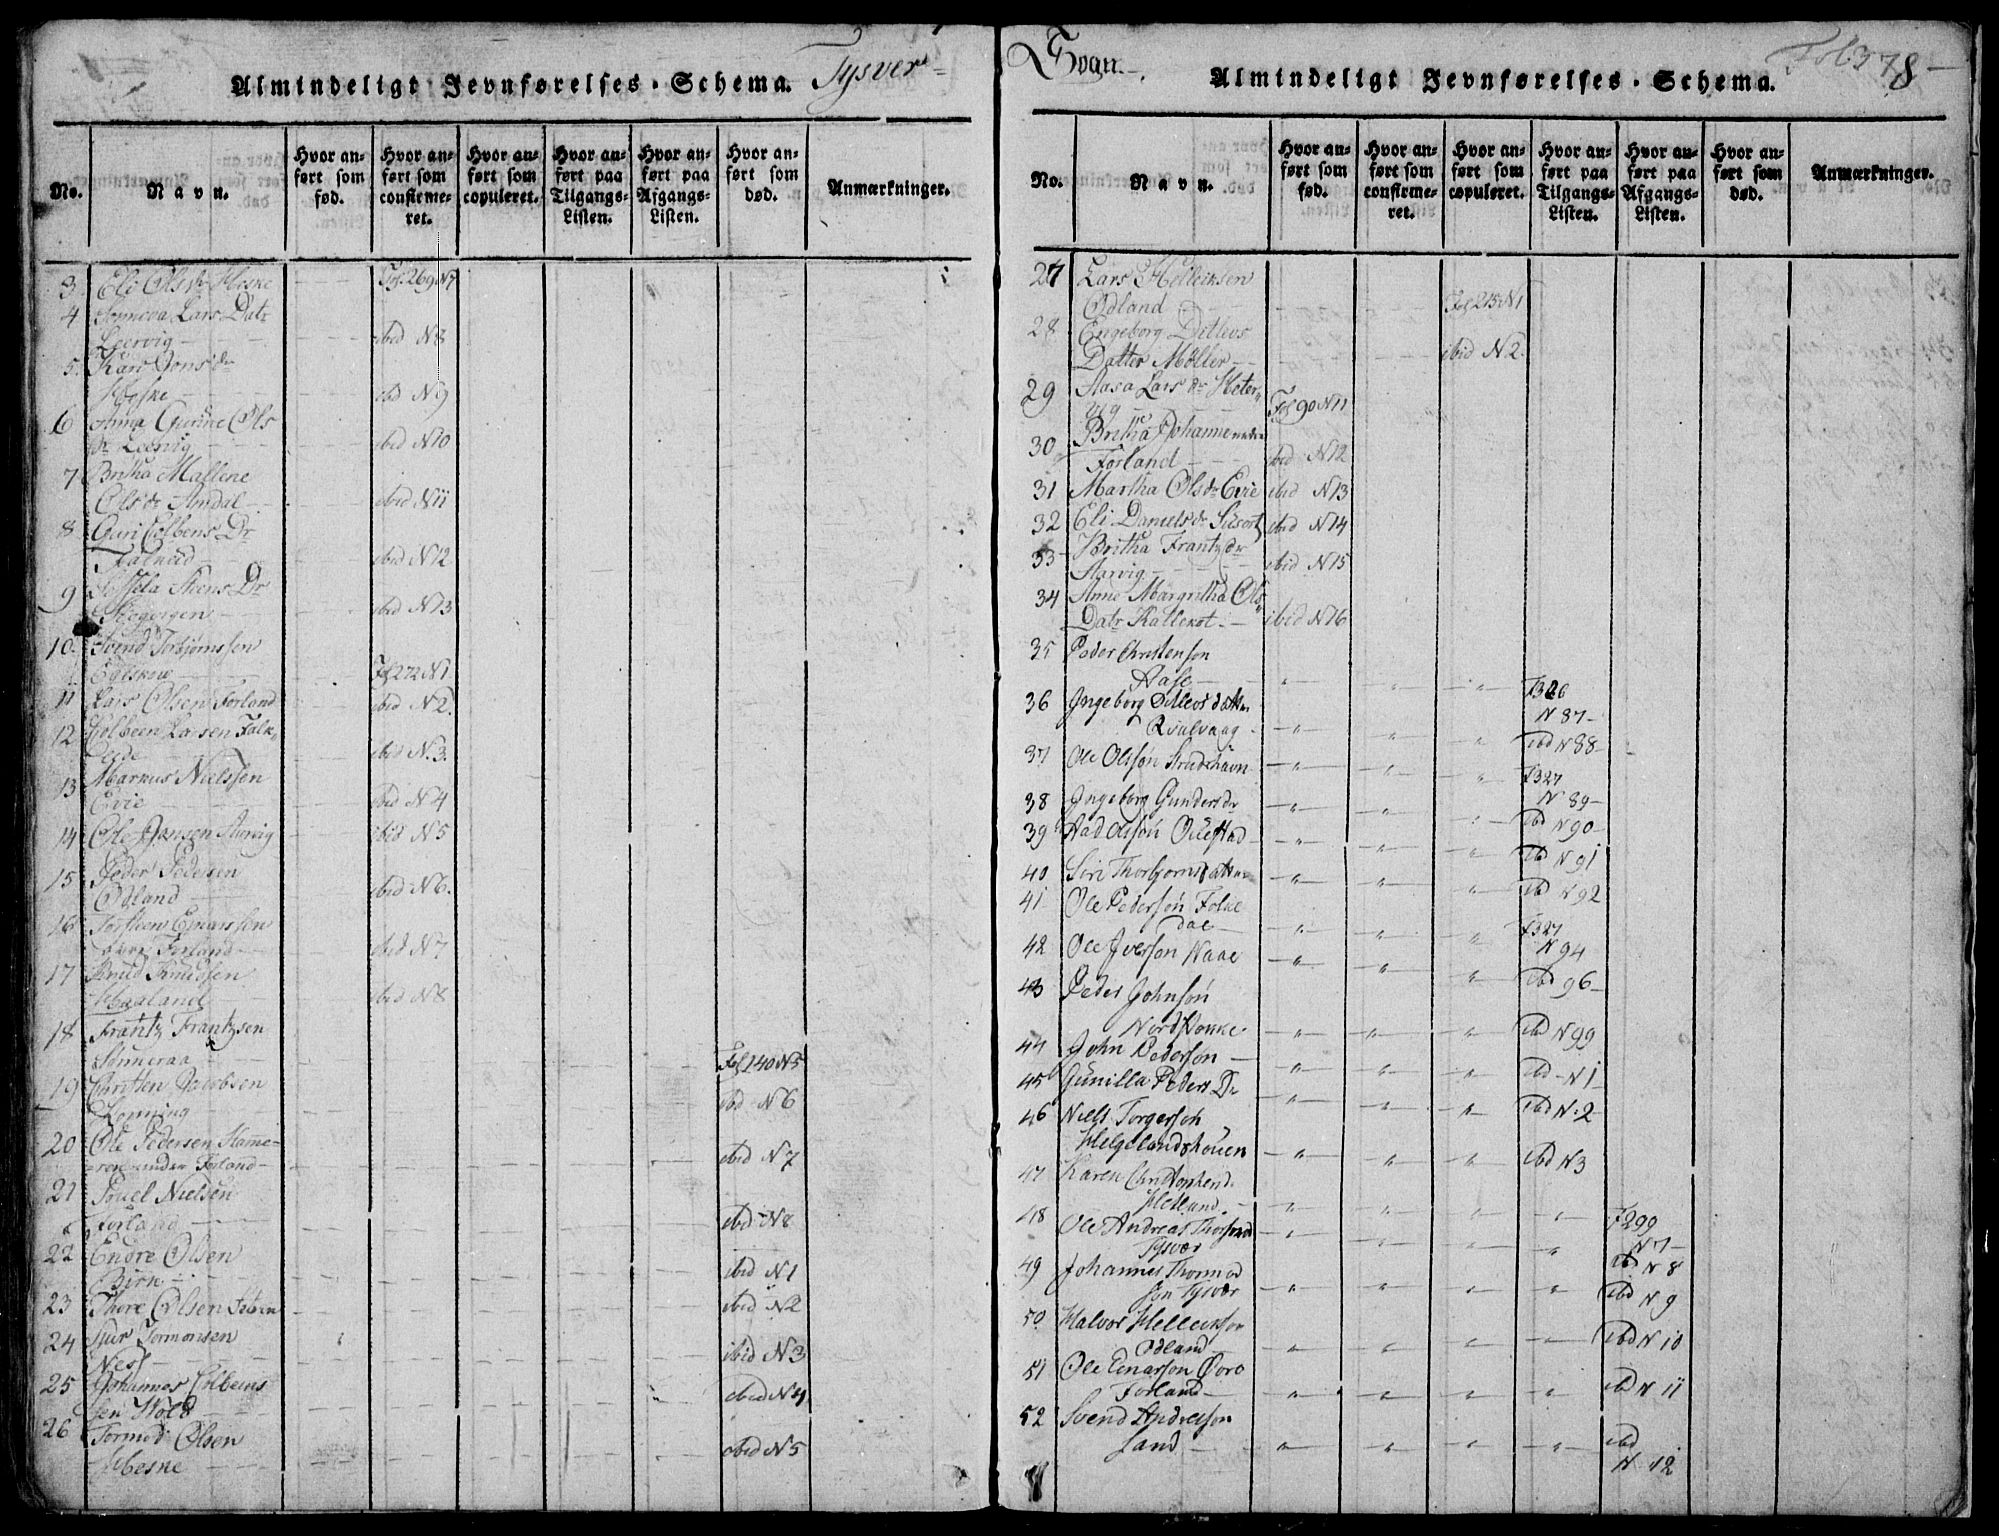 Almindeligt Jevnførelses-Schema. Tysver
No.
Navn.
Hvor anført som fød.
Hvor anført som confirmeret.
Hvor anført som copuleret.
Hvor anført paa Tilgangs-Listen.
Hvor anført paa Afgangs-Listen.
Hvor anført som død.
Anmærkninger.
3 Eli Olsdr Heske Fol 269 N7
4 Lars Datr
Leervig ibid N8
5. Kari Jonsdr
Heske ibd N9
6 Anna Gurine Ols
dr Leervig ibid N10
7 Britha Mallene
Olsdr Amdal ibid N11
8 Guri Colbens Dr
ibid N12
9 Dr
ibid N13
10. Svend Torbjørnssen
Fol 272 N1
11 Lars Olsen Forland ibid N2.
12 Colbeen Larsen Falk-
eide ibid N.3.
13 Markus Nielssen
Evie ibid N4
14 Ole Jansen Aarvig ibid N5
15 Peder Pedersen
Odland ibid N6.
16 Torsteen Ejnarssen
Forland ibid N7
17 Knud Knudsen
Haaland ibid N8
18 Frantz Frantzsen
Stuneraa Fol 140 N5
19 Christen Jacobsen
Konning ibd N6
20 Ole Pedersen Hame-
ren under Forland ibid N7
21 Poul Nielsen
Forland ibid N8
22 Endre Olsen
Birn ibid N1
23 Thore Olsen ibid N2
24 Tormonsen
Ness ibid N3
25 Johannes Colbeens
sen ibid N4
26 Tormod Olsen
Heske ibid N5
Sogn.
Almindeligt Jevnførelses-Schema.
Fol. 378
No.
Navn.
Hvor anført som fød.
Hvor anført som confirmeret.
Hvor anført som copuleret.
Hvor anført paa Tilgangs-Listen.
Hvor anført paa Afgangs-Listen.
Hvor anført som død.
Anmærkninger.
27 Lars Helliksen
Odland Fol 215 N1
28 Engeborg Ditlevs
Datter Møller ibid N2.
29 Aasa Lars dr
Fol 90 N11
30 Britha Johannesdr
Forland ibid N12
31 Martha Olsdr Evie ibid N13
32 Eli Danielsdr Susort ibid N14
33 Britha Frantzdr
Aarvig ibid N15
34 Anne Margretha Ols
Datr Kallekot ibid N16
35 Peder Christenson
Aase F326
N 87
36 Ingeborg Ditlevsdatter
Qvalvaag Ibd N 88
37 Ole Olsøn Studehavn F327
N 89
38 Ingeborg Gundersdr Ibd N 90
39 Aad Olsøn Ib N 91
40 Siri Thorbjørnsdatter Ib N 92
41 Ole Pedersøn Folke
dal F327
N 94
42 Ole Iversøn Naae Ibd 96
43 Peder Johnsøn
Nordstokke Ibd N 99
44 John Pedersøn Ibd N 1
45 Gunilla Peders Dr Ibd N. 2
46 Niels Torgersøn
Helgelandshouen Ibd N3
47 Karen
Hetland F299
N 7
48 Ole Andreas
Tysvær ibd N 8
49 Johannes Thormod
søn Tysvær ibd N 9
50 Halvor Hellikson
Odland ibd N 10
51 Ole Einarson Øvre
Forland ibd N 11
52 Svend Anderson
Sand ibd
N 12